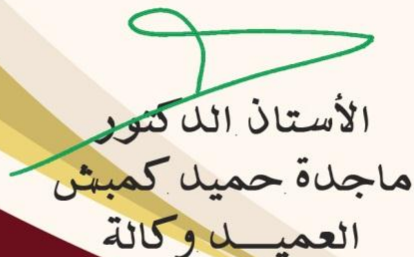 الأستاذ الدكتور
ماجدة حميد كمبش
العميــد وكالة